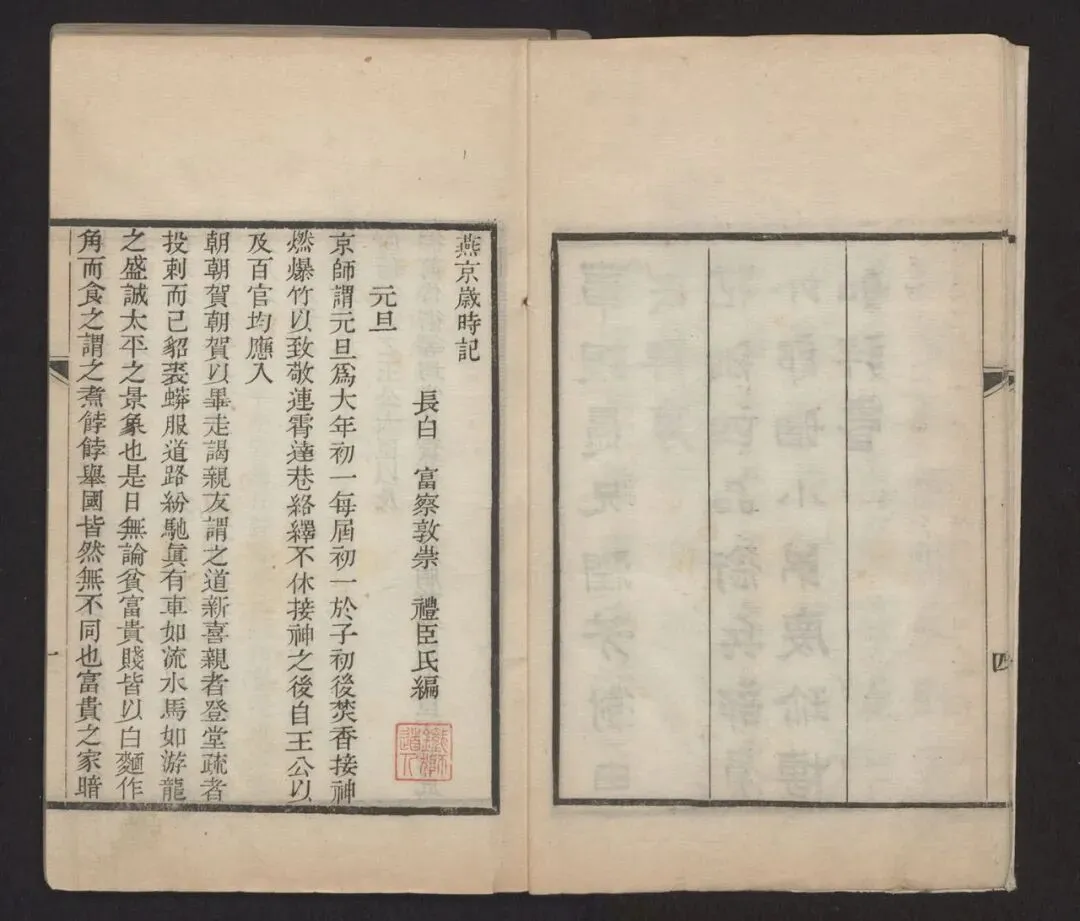 四
燕京歲時記
長白 富察敦崇 禮臣氏編
鐵獅道人
元旦
京師謂元旦爲大年初一每屆初一於子初後焚香接神
燃爆竹以致敬連霄達巷絡繹不休接神之後自王公以
及百官均應入
朝朝賀朝賀以畢走謁親友謂之道新喜親者登堂疏者
投刺而已貂裘蟒服道路紛馳眞有車如流水馬如游龍
之盛誠太平之景象也是日無論貧富貴賤皆以白麵作
角而食之謂之煮餑餑舉國皆然無不同也富貴之家暗
一